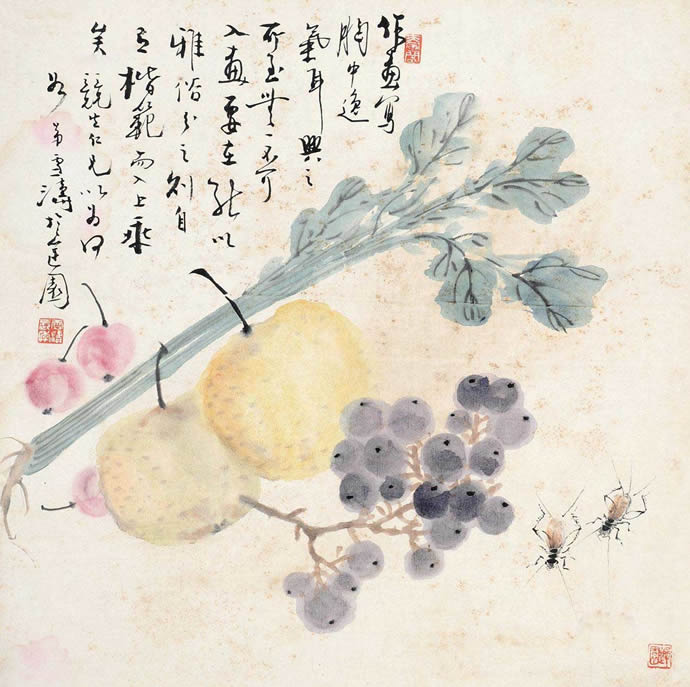 作畫写
胸中逸
氣耳興之
所至無一不可
入畫要在能以
雅俗分之則自
有楷範而入上乘
矣競生仁兄以为何
如弟雪濤於遲園